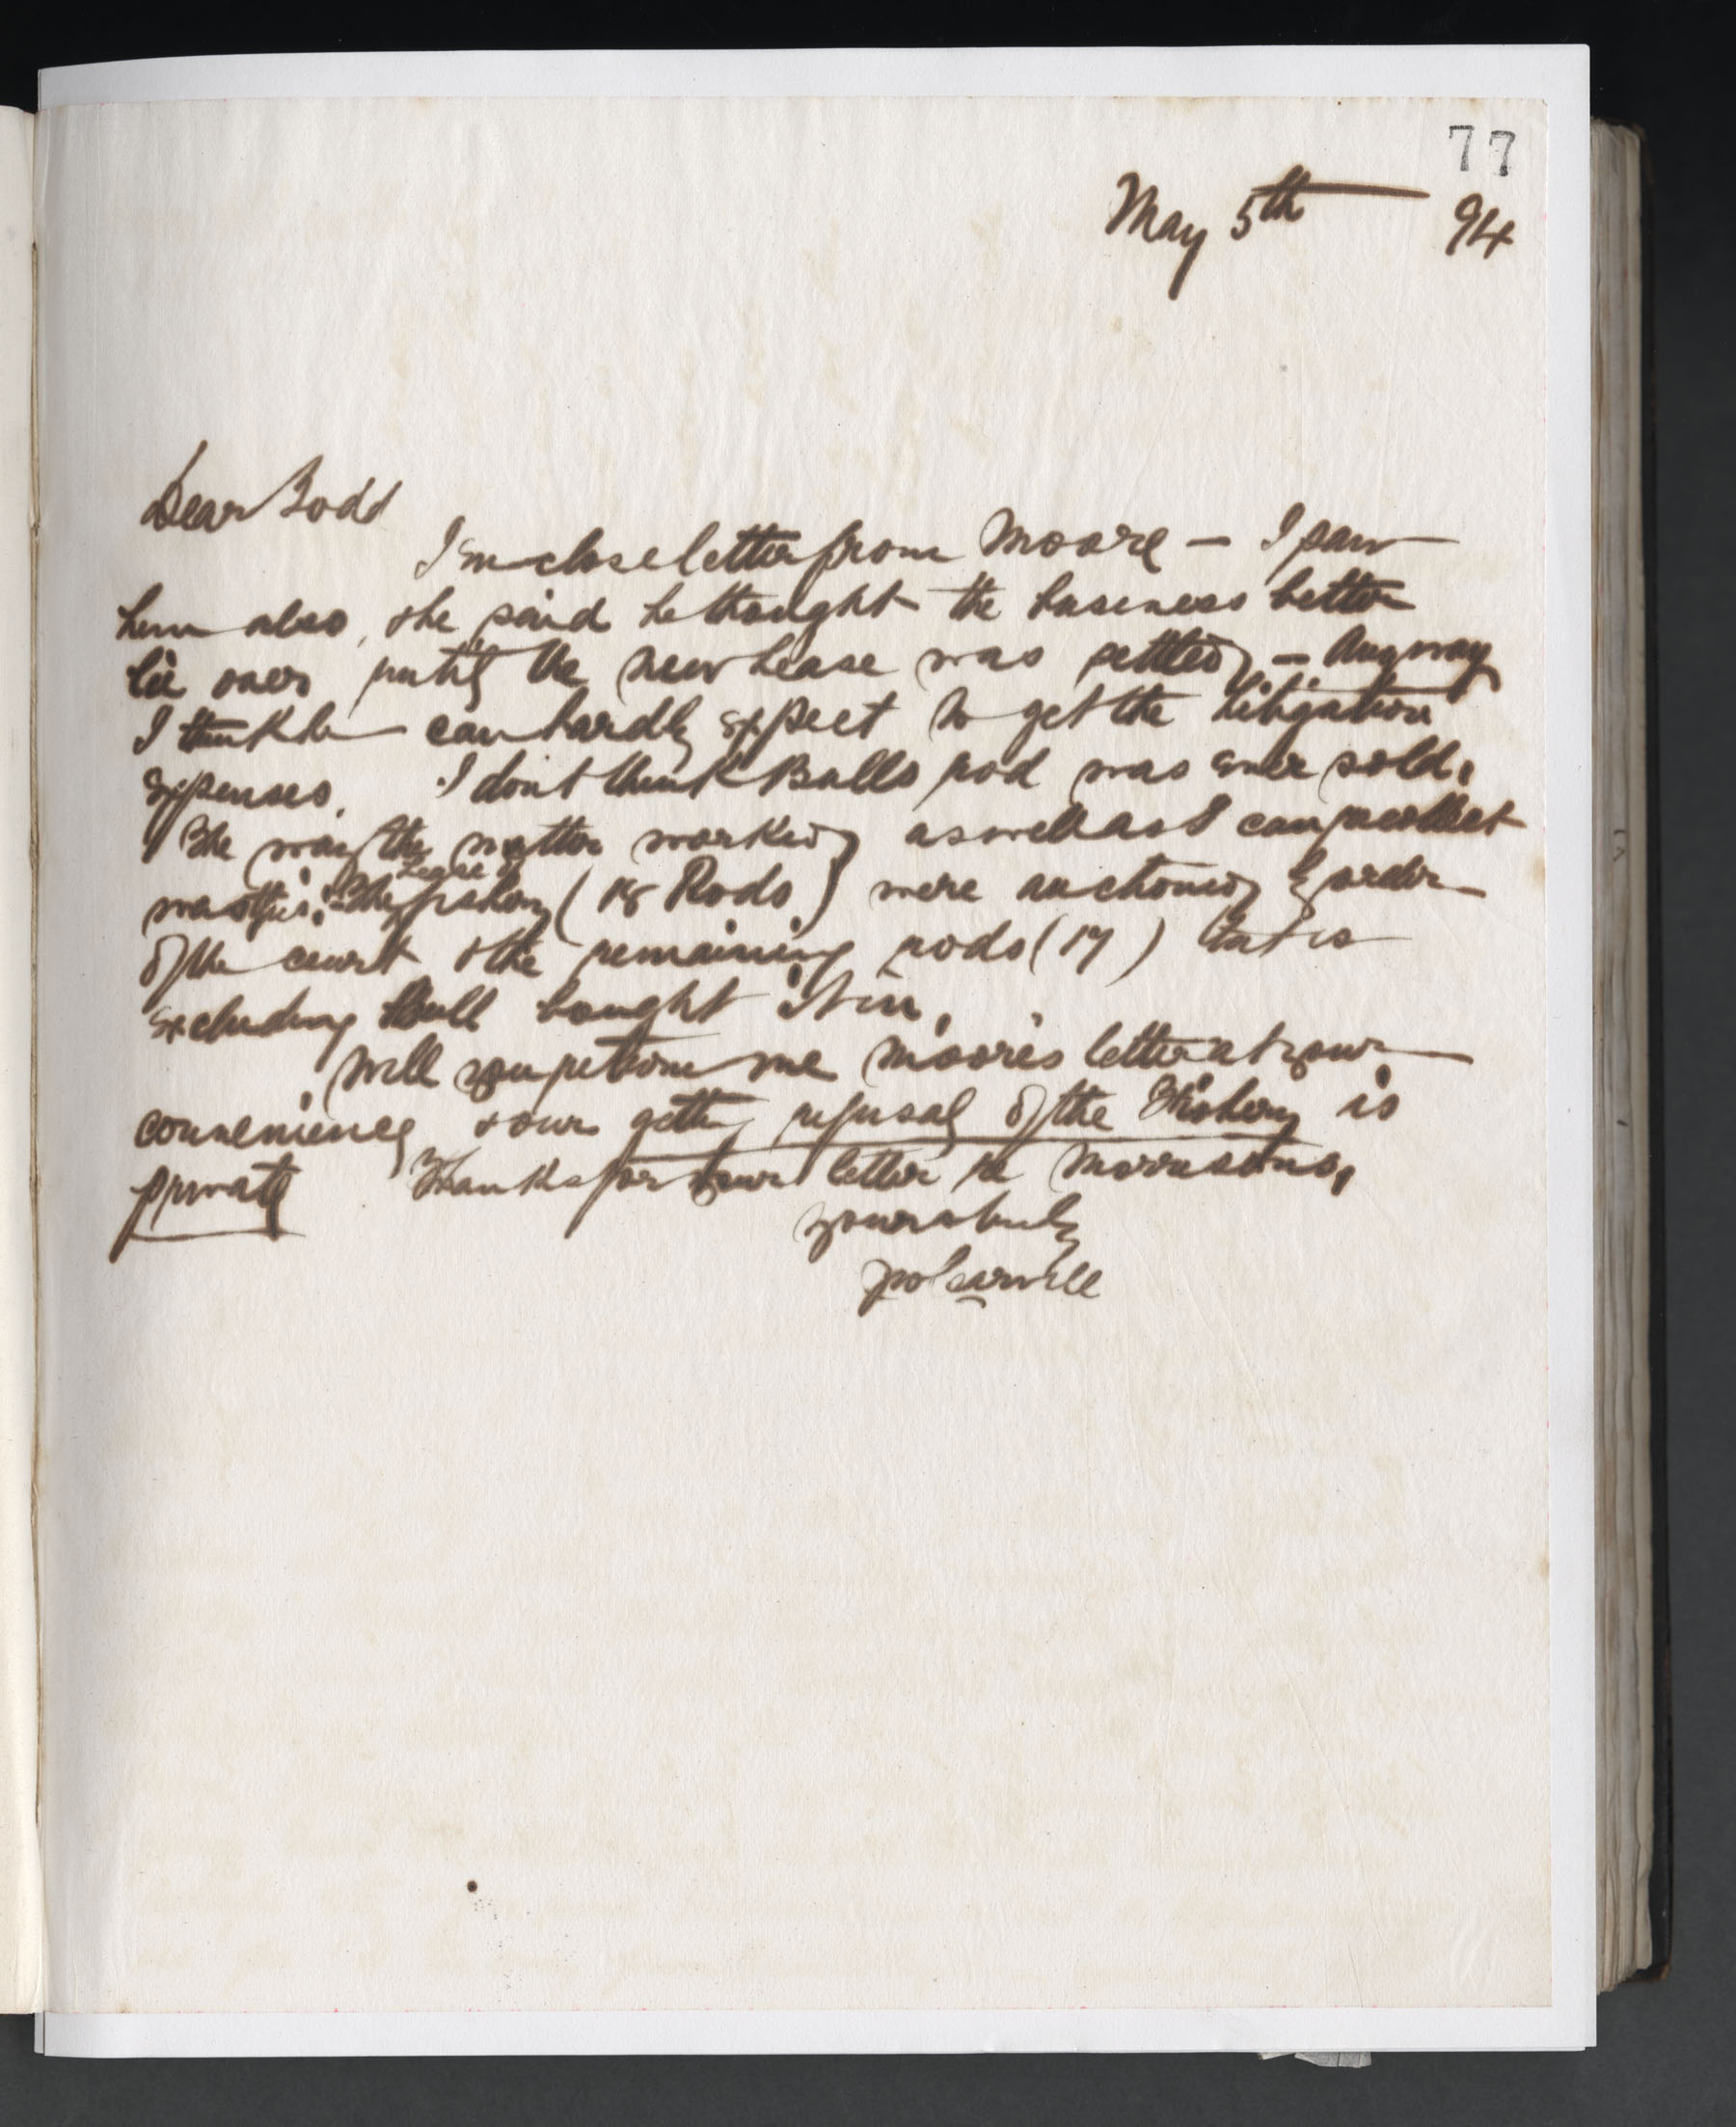 77
May 5th 94
Dear Todd
I enclose letter from Moore - I saw
him also, & he said he thought the business better
lie over until the new lease was settled - Anyway
I think he can hardly expect to get the litigation
expenses. I don't think Bulls rod was ever sold.
The way the matter worked as well as I can recollect
was this:- The Lease of fishery (18 Rods) were auctioned by order
of the court & the remaining rods (17) that is
excluding Bull bought it in.
Will you return me Moore's letter at your
convenience, & our getting refusal of the Fishery is
private Thanks for your letter re
yours truly